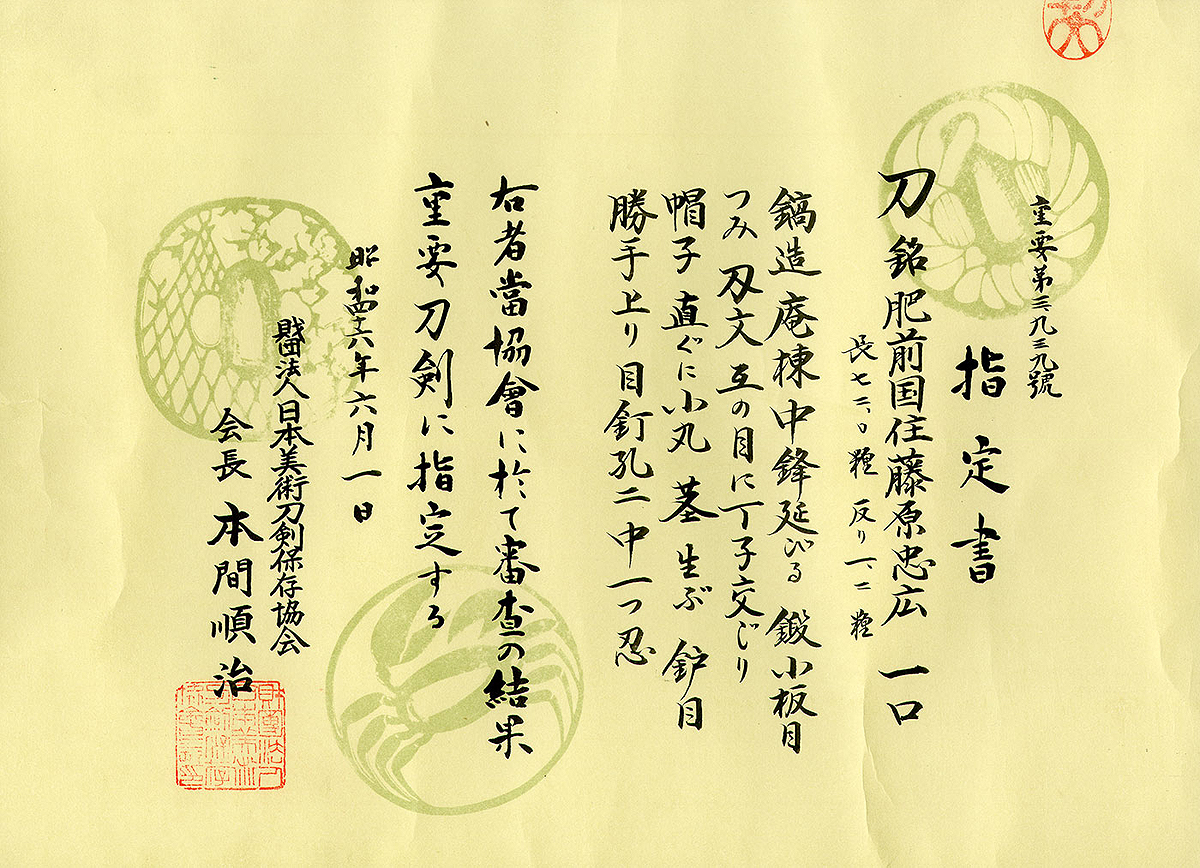 重要第三九三九號
指定書
刀 銘 肥前国住藤原忠広 一口
長七二、〇糎 反り一、二糎
鎬造 庵棟 中鋒延びる 鍛 小板目
つみ 刃文 互の目に丁子交じり
帽子 直ぐに小丸 茎 生ぶ 鈩目
勝手上り 目釘孔二中一つ忍
右者當協會に於て審査の結果
重要刀剣に指定する
昭和四十六年六月一日
財団法人日本美術刀剣保存協会
会長 本間順治